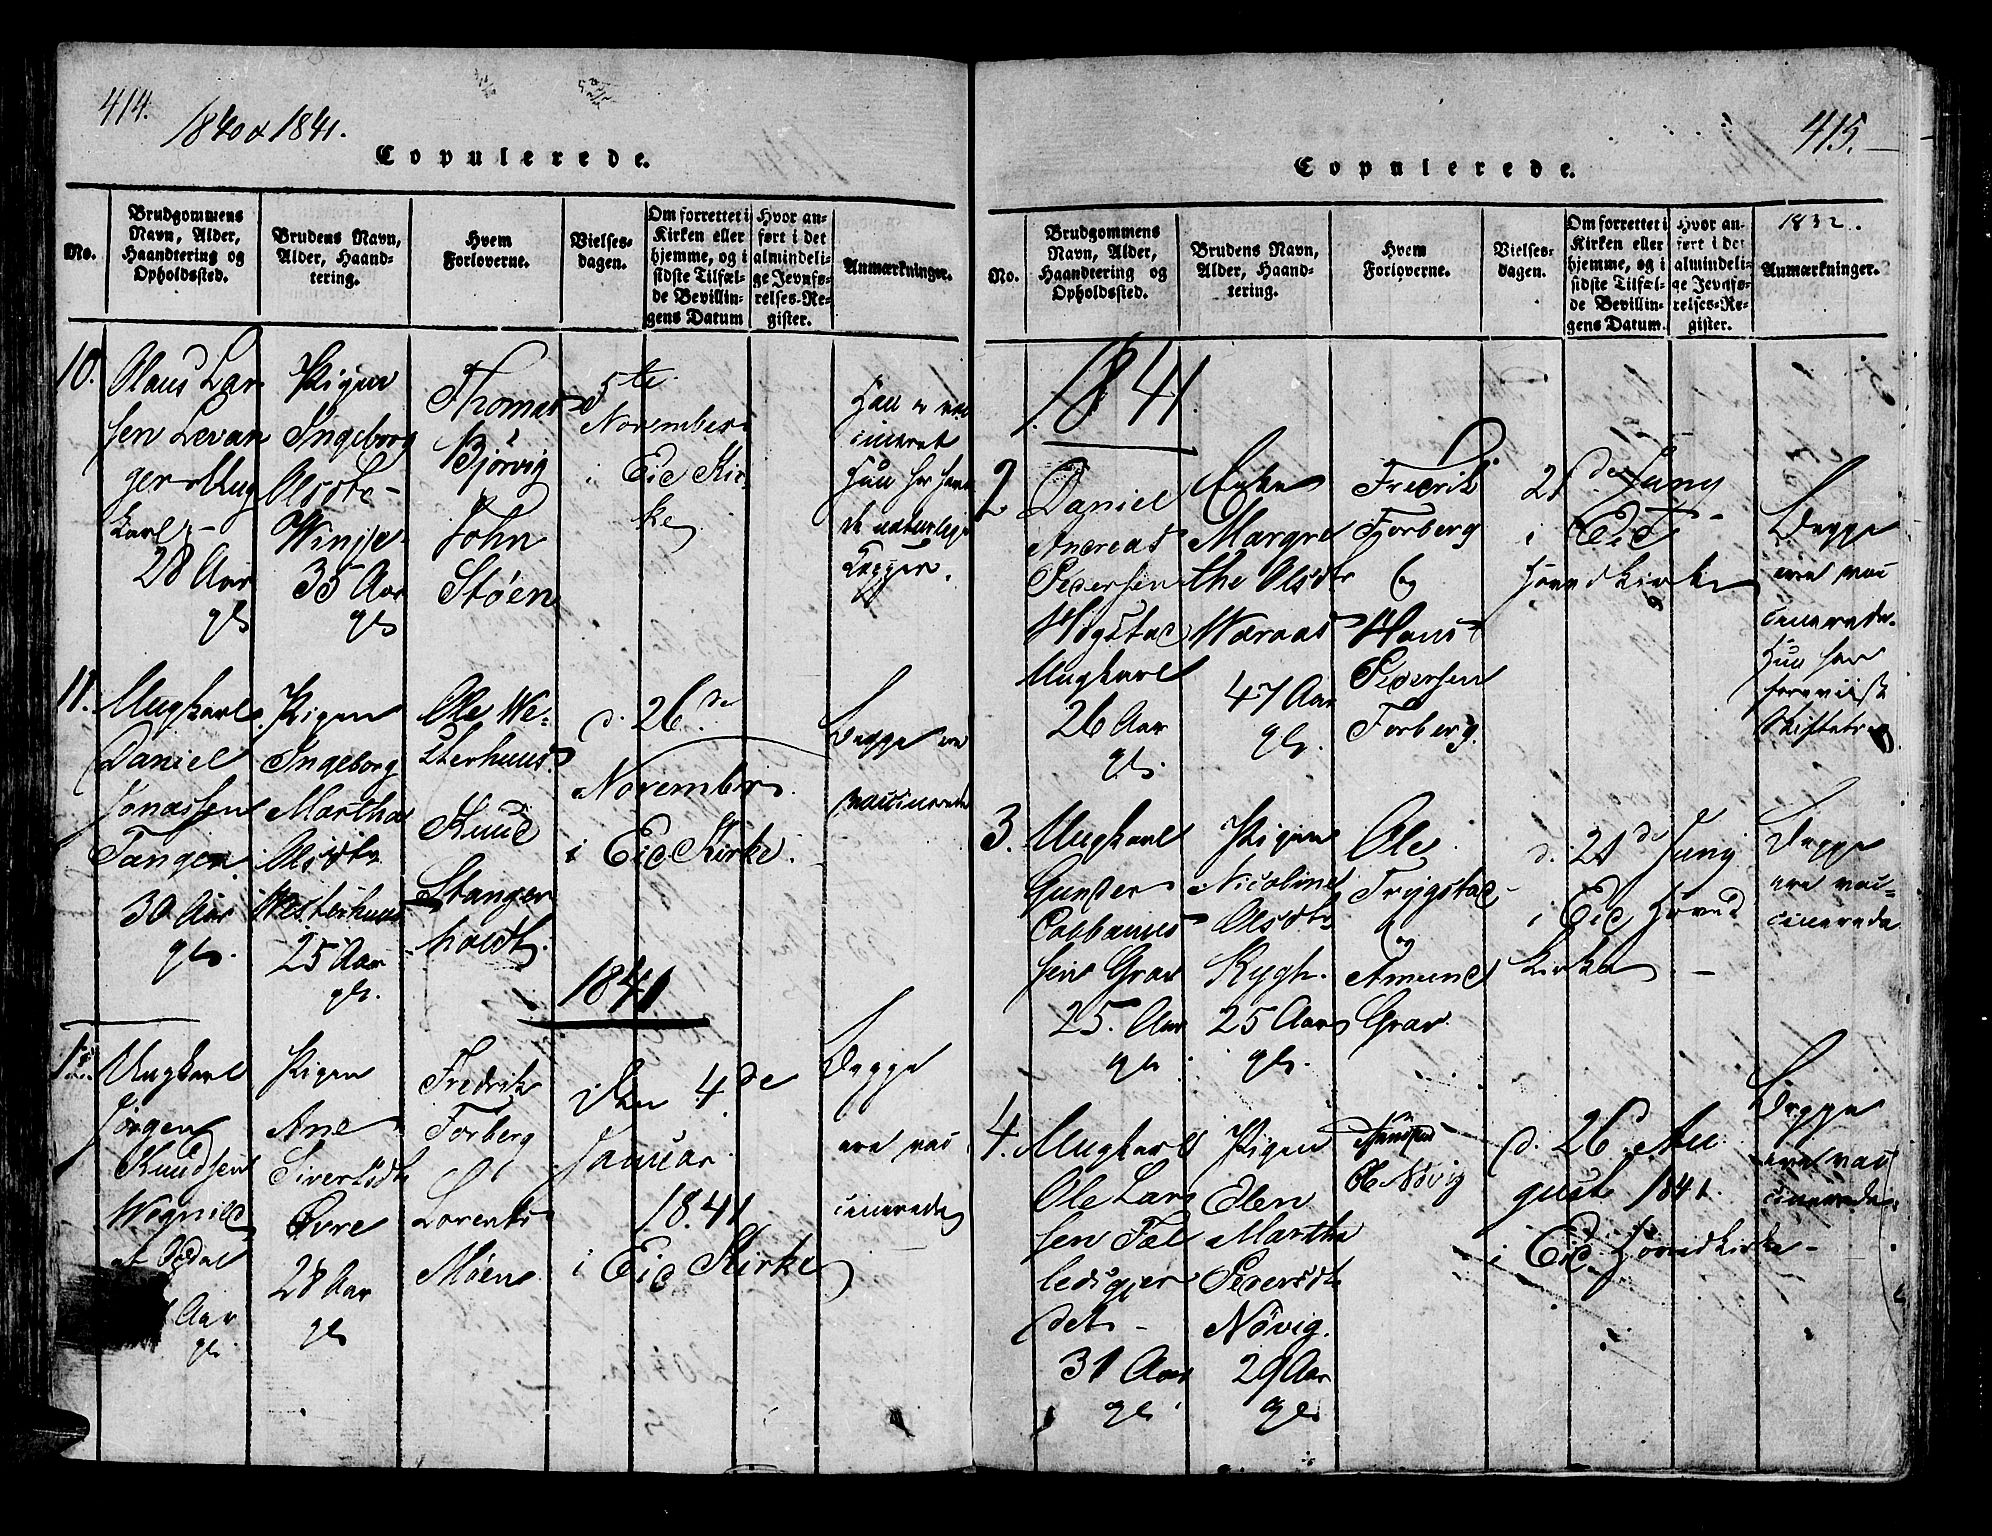 414.
1840 & 1841.
Copulerede.
No.
Brudgommens
Navn, Alder,
Haandtering og
Opholdssted.
Brudens Navn,
Alder, Haand-
tering.
Hvem
Forloverne.
Vielses-
dagen.
Om forrettet i
Kirken eller
hjemme, og i
sidste Tilfæl-
de Bevillin-
gens Datum
Hvor an-
ført i det
almindeli-
ge Jevnfø-
relses-Re-
gister.
Anmærkninger.
10.
Olaus Lar
sen Levan
ger Ung
karl
28 Aar
gl
Pigen
Ingeborg
Olsdtr
Winje
35 Aar
gl
Thomas
Bjørvig
John
Støen
5te
November
i Eid Kir
ke
Han er vac
cineret
Hun har havt
de naturlige
Kopper.
11.
Ungkarl
Daniel
Jonassen
Tangen.
30 Aar
gl.
Pigen
Ingeborg
Martha
Olsdtr
Westerhuus
25 Aar
gl.
Ole We-
sterhuus
Knud
Stanger
holdt.
d. 26de
November
i Eid Kirke.
Begge ere
vaccinerede
1841
1.
Ungkarl
Jørgen
Knudsen
Wognild
Aar
gl.
Pigen
Ane
Sivertsdtr
Øvre
28 Aar
gl
Fredrik
Forberg
Lorents
Møen
Den 4de
Januar
1841
i Eid Kirke
Begge
ere vac
cinerede
415.
Copulerede.
No.
Brudgommens
Navn, Alder,
Haandtering og
Opholdssted.
Brudens Navn,
Alder, Haand-
tering.
Hvem
Forloverne.
Vielses-
dagen.
Om forrettet i
Kirken eller
hjemme, og i
sidste Tilfæl-
de Bevillin-
gens Datum.
Hvor an-
ført i det
almindeli-
ge Jevnfø-
relses-Re-
gister.
1832.
Anmærkninger.
1841.
2
Daniel
Andreas
Pedersen
Hogstad
Ungkarl
26 Aar
gl.
Enke
Margre
the Olsdtr
Waraas
47 Aar
gl.
Fredrik
Forberg
og
Hans
Pedersen
Forberg
21de Juny
i Eid
Hovedkirke
Begge
ere vac
cinerede.
Hun har
foreviist
Skiftebrev
3.
Ungkarl
Gunder
sen Grav
25. Aar
gl.
Pigen
Nicoline
Olsdtr
Rygh.
25 Aar
gl.
Ole
Trygstad
og
Amund
Grav.
d. 21de Juny
i Eid Hoved
Kirke
Begge
ere vac-
cinerede
4.
Ungkarl
Ole Lar
sen Fal
ledsgjer
det
31 Aar
gl.
Pigen
Elen
Martha
Pedersdtr
Nøvig.
29 Aar
gl.
Ole Nøvig
d. 26 Au
gust 1841.
i Eid Hovedkirke
Begge
ere vac
cinerede.